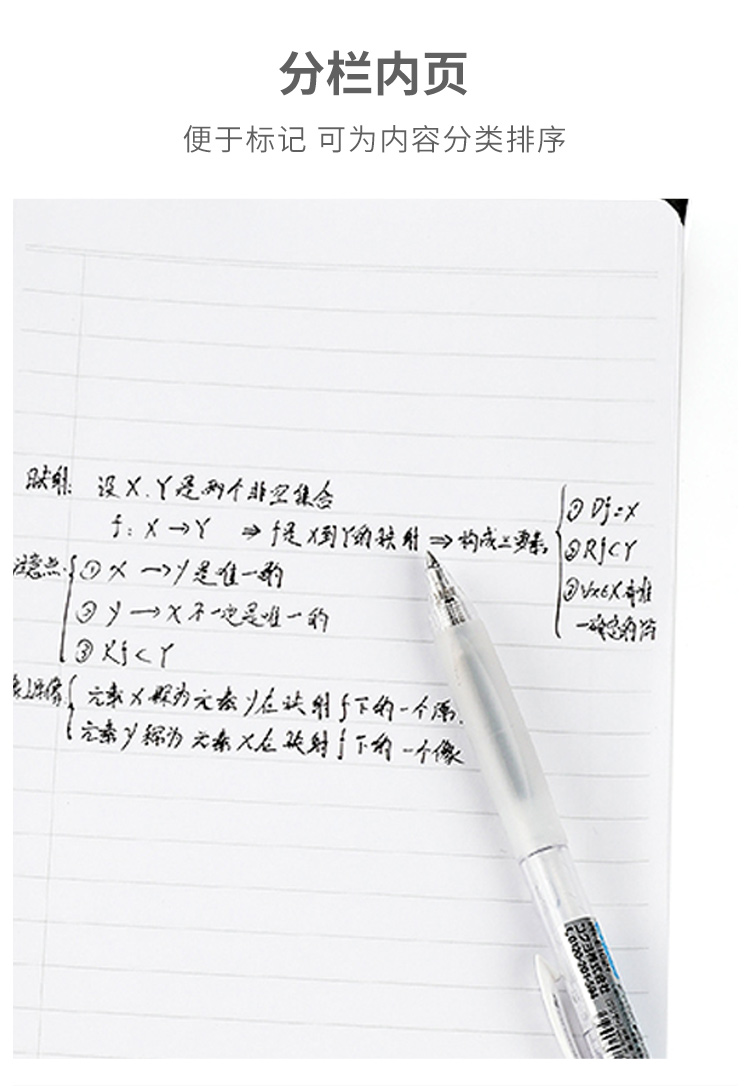 分栏内页
便于标记 可为内容分类排序
映射: 设 X. Y 是两个非空集合
f: X → Y ⇒ f是X到Y的映射 ⇒ 构成三要素
① Df = X
② Rf ⊂ Y
③ ∀x∈X 有唯
一确定的
注意点: ① X → y 是唯一的
② y → X 不一定是唯一的
③ Rf ⊂ Y
元素 x 称为元素 y 在映射 f 下的一个原
元素 y 称为元素 x 在映射 f 下的一个像